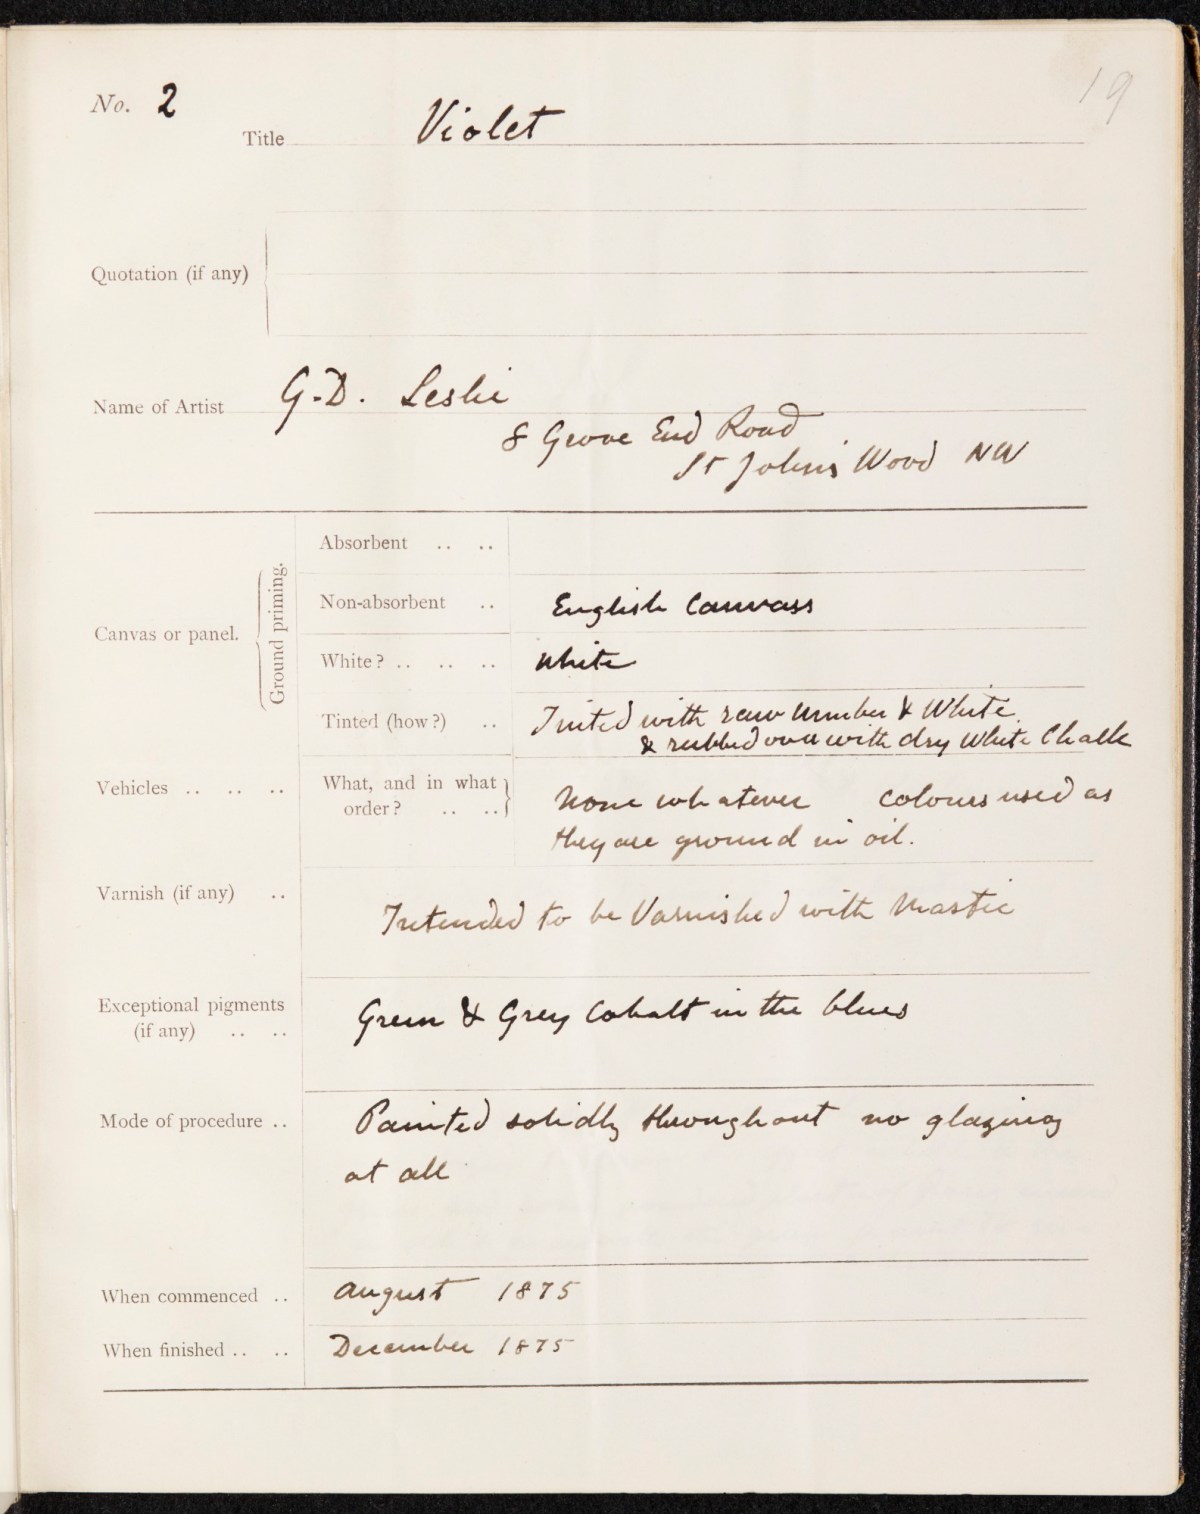 19
No. 2
Title Violet
Quotation (if any)
Name of Artist G.D. Leslie
8 Grove End Road
St John's Wood NW
Canvas or panel.
Ground priming.
Absorbent .. ..
Non-absorbent .. English Canvass
White? .. .. .. White
Tinted (how?) .. Tinted with raw umber & White
& rubbed over with dry White Chalk
Vehicles .. .. .. What, and in what order? .. .. None whatever colours used as
they are ground in oil.
Varnish (if any) .. Intended to be Varnished with Mastic
Exceptional pigments
(if any) .. .. Green & Grey Cobalt in the blues
Mode of procedure .. Painted solidly throughout no glazing
at all
When commenced .. August 1875
When finished .. .. December 1875